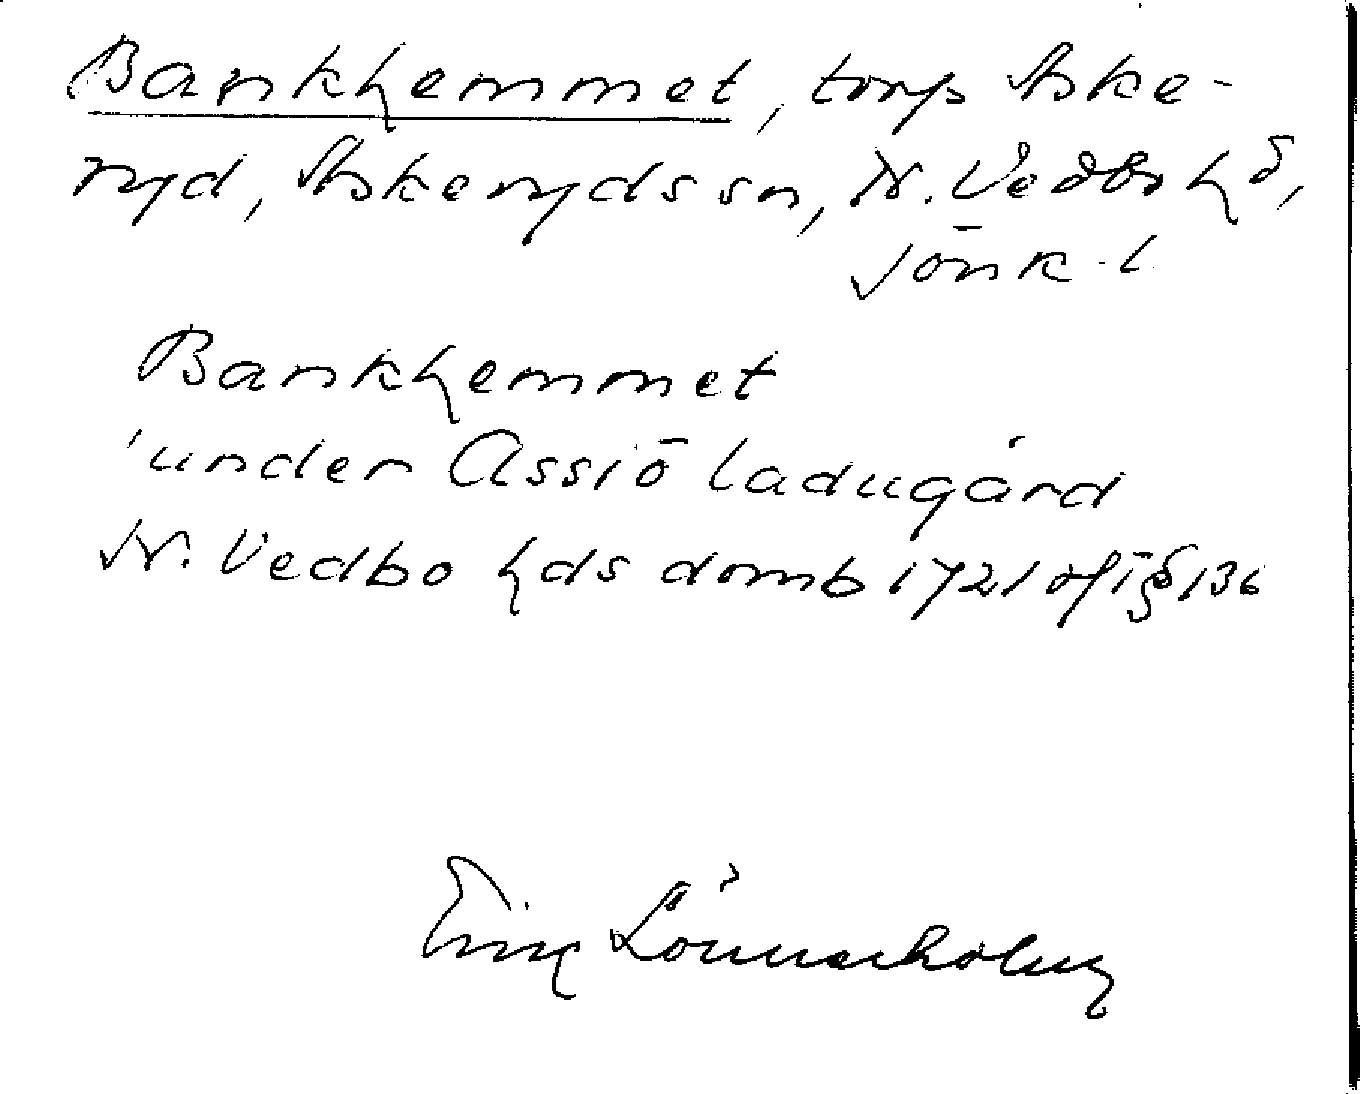 Bankhemmet, torp Aske-
ryd, Askeryds sn, N. Vedbo hd,
Jönk. l
Bankhemmet
under Assiö ladugård
N. Vedbo hds domb 1721 § 136
Einar Lönnerholm